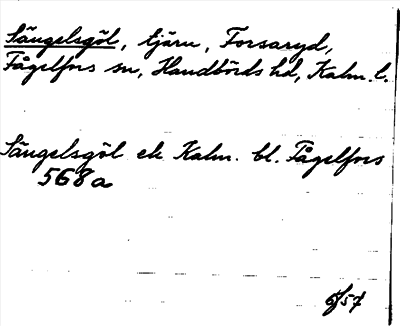 Sängelsgöl, tjärn, Forsaryd,
Fågelfors sn, Handbörds hd, Kalm. l.
Sängelsgöl ek Kalm. bl. Fågelfors
568a
5/57